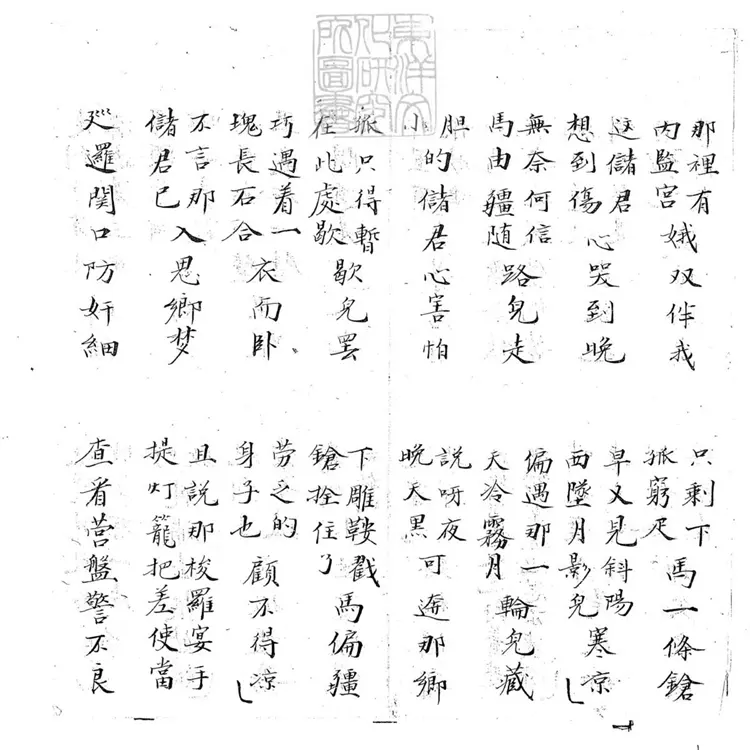 東洋文
化研究
所圖書
那裡有内監宫娥双伴我
只剩下孤窮疋馬一條鎗
这儲君想到傷心哭到晚
早又見斜陽西墜月影兒寒凉
無奈何信馬由韁随路兒走
偏遇那一天冷霧月輪兒藏
胆小的儲君心害怕
說呀夜晚天黑可逩那鄉
孤只得暫在此處歇歇兒罢
下雕鞍戳鎗拴住了馬偏韁
巧遇着一塊長石合衣而卧
劳乏的身子也顧不得凉
不言那儲君已入思鄉梦
且說那梭羅宴手提灯籠把差使當
廵邏関口防奸細
查看营盤警不良